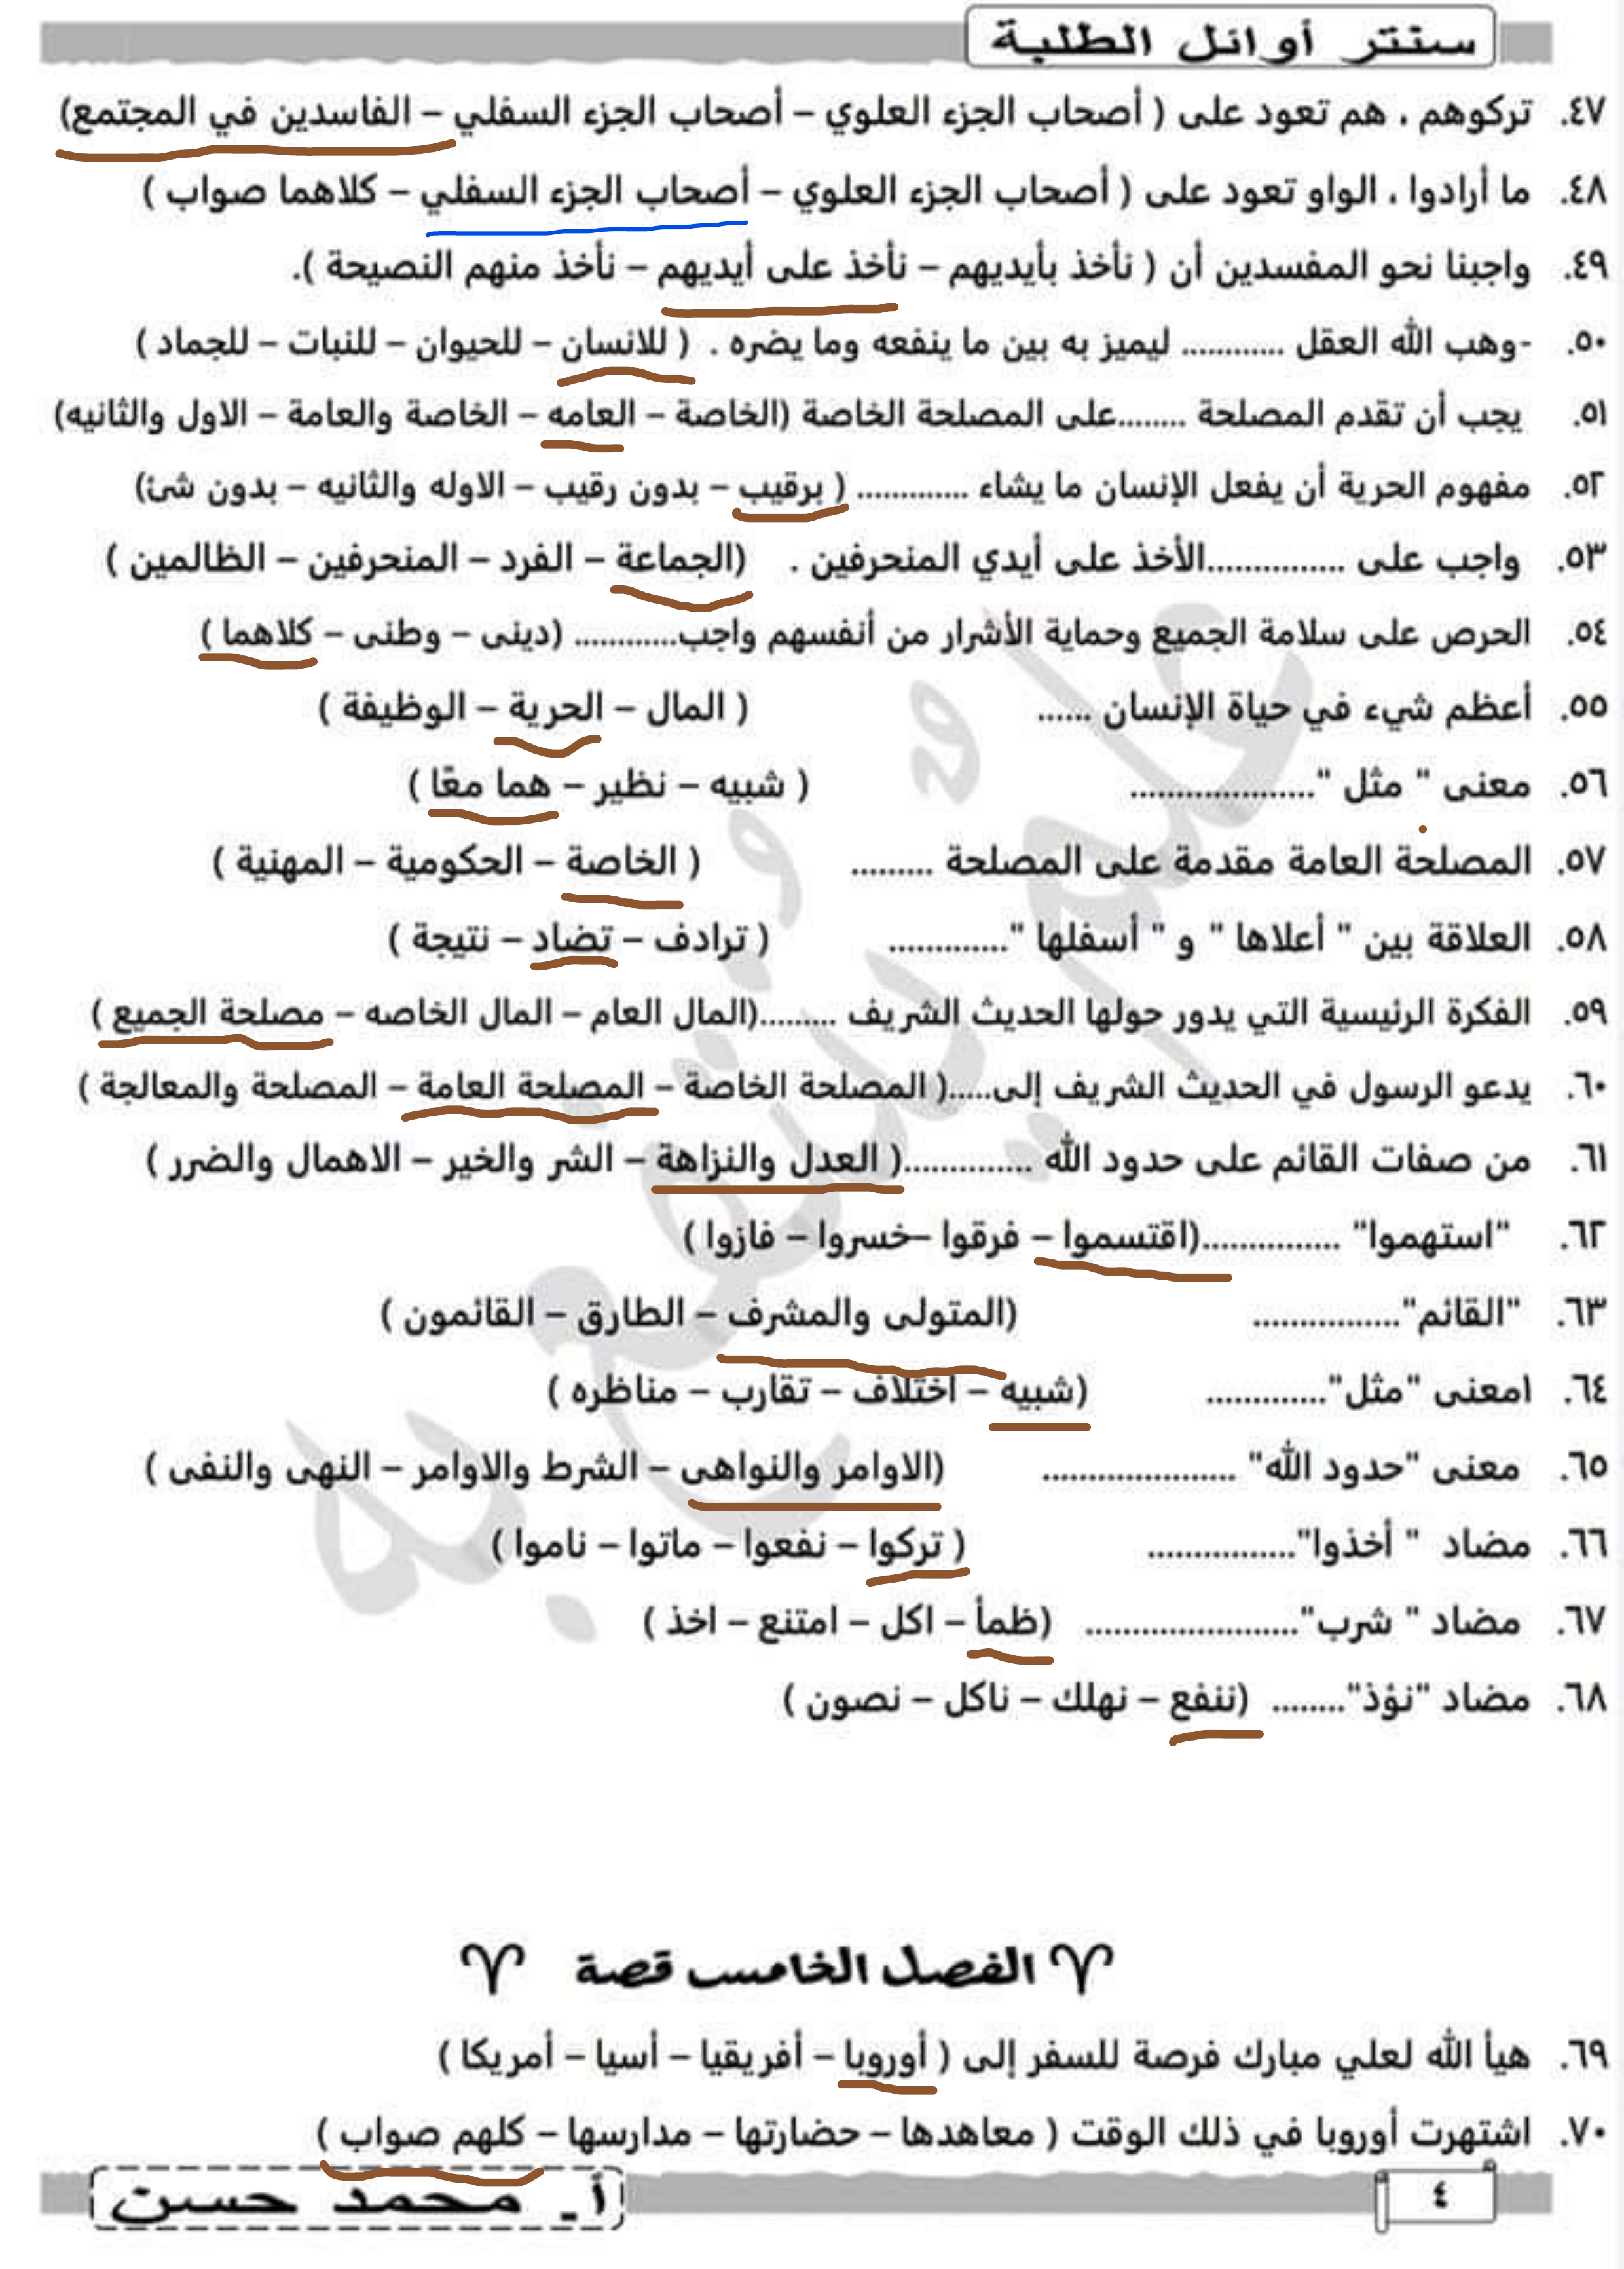 سنتر أوائل الطلبة
٤٧. تركوهم ، هم تعود على ( أصحاب الجزء العلوي – أصحاب الجزء السفلي – الفاسدين في المجتمع)
٤٨. ما أرادوا ، الواو تعود على ( أصحاب الجزء العلوي – أصحاب الجزء السفلي – كلاهما صواب )
٤٩. واجبنا نحو المفسدين أن ( نأخذ بأيديهم – نأخذ على أيديهم – نأخذ منهم النصيحة ).
٥٠. -وهب الله العقل ............ ليميز به بين ما ينفعه وما يضره . ( للانسان – للحيوان – للنبات – للجماد )
٥١. يجب أن تقدم المصلحة ........على المصلحة الخاصة (الخاصة – العامه – الخاصة والعامة – الاول والثانيه)
٥٢. مفهوم الحرية أن يفعل الإنسان ما يشاء ............. ( برقيب – بدون رقيب – الاوله والثانيه – بدون شئ)
٥٣. واجب على ...............الأخذ على أيدي المنحرفين . (الجماعة – الفرد – المنحرفين – الظالمين )
٥٤. الحرص على سلامة الجميع وحماية الأشرار من أنفسهم واجب............ (دينى – وطنى – كلاهما )
٥٥. أعظم شيء في حياة الإنسان ...... ( المال – الحرية – الوظيفة )
٥٦. معنى " مثل ".................... ( شبيه – نظير – هما معًا )
٥٧. المصلحة العامة مقدمة على المصلحة ......... ( الخاصة – الحكومية – المهنية )
٥٨. العلاقة بين " أعلاها " و " أسفلها "............. ( ترادف – تضاد – نتيجة )
٥٩. الفكرة الرئيسية التي يدور حولها الحديث الشريف .........(المال العام – المال الخاصه – مصلحة الجميع )
٦٠. يدعو الرسول في الحديث الشريف إلى.....( المصلحة الخاصة – المصلحة العامة – المصلحة والمعالجة )
٦١. من صفات القائم على حدود الله ..............( العدل والنزاهة – الشر والخير – الاهمال والضرر )
٦٢. "استهموا" ...............(اقتسموا – فرقوا –خسروا – فازوا )
٦٣. "القائم"................ (المتولى والمشرف – الطارق – القائمون )
٦٤. امعنى "مثل"............. (شبيه – اختلاف – تقارب – مناظره )
٦٥. معنى "حدود الله" ..................... (الاوامر والنواهى – الشرط والاوامر – النهى والنفى )
٦٦. مضاد " أخذوا"................ ( تركوا – نفعوا – ماتوا – ناموا )
٦٧. مضاد " شرب"....................... (ظمأ – اكل – امتنع – اخذ )
٦٨. مضاد "نؤذ"........ (ننفع – نهلك – ناكل – نصون )
الفصل الخامس قصة
٦٩. هيأ الله لعلي مبارك فرصة للسفر إلى ( أوروبا – أفريقيا – أسيا – أمريكا )
٧٠. اشتهرت أوروبا في ذلك الوقت ( معاهدها – حضارتها – مدارسها – كلهم صواب )
٤
أ. محمد حسن